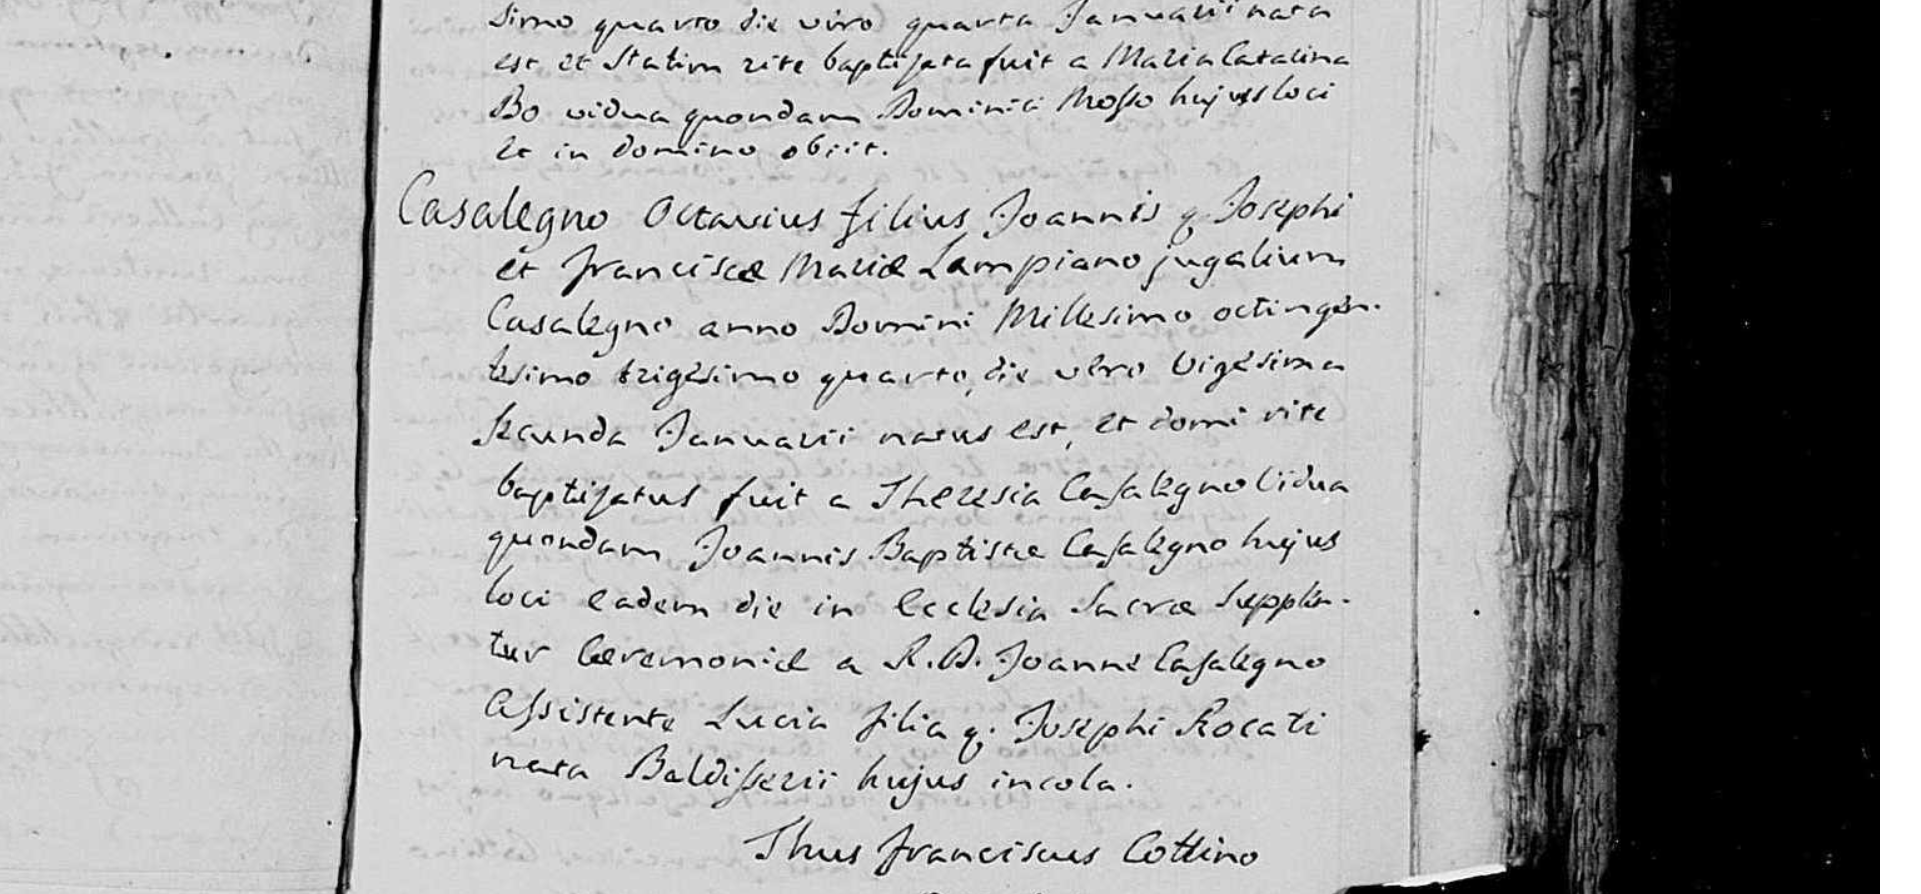 simo quarto die vero quarta Januarii nata
est et statim rite baptisata fuit a Maria Catalina
Bo vidua quondam Dominici Mosso hujus loci
et in Domino obiit.
Casalegno Octavius filius Joannis q. Josephi
et Franciscæ Mariæ Lampiano jugalium
Casalegno anno Domini Millesimo octingen-
tesimo trigesimo quarto, die vero Vigesima
secunda Januarii natus est, et domi rite
baptisatus fuit a Theresia Casalegno Vidua
quondam Joannis Baptistæ Casalegno hujus
loci eadem die in Ecclesia Sacræ Supplen-
tur Ceremoniæ a R. D. Joanne Casalegno
Assistente Lucia filia q. Josephi Rocati
nata Baldisserii hujus incola.
Thus Franciscus Cottino